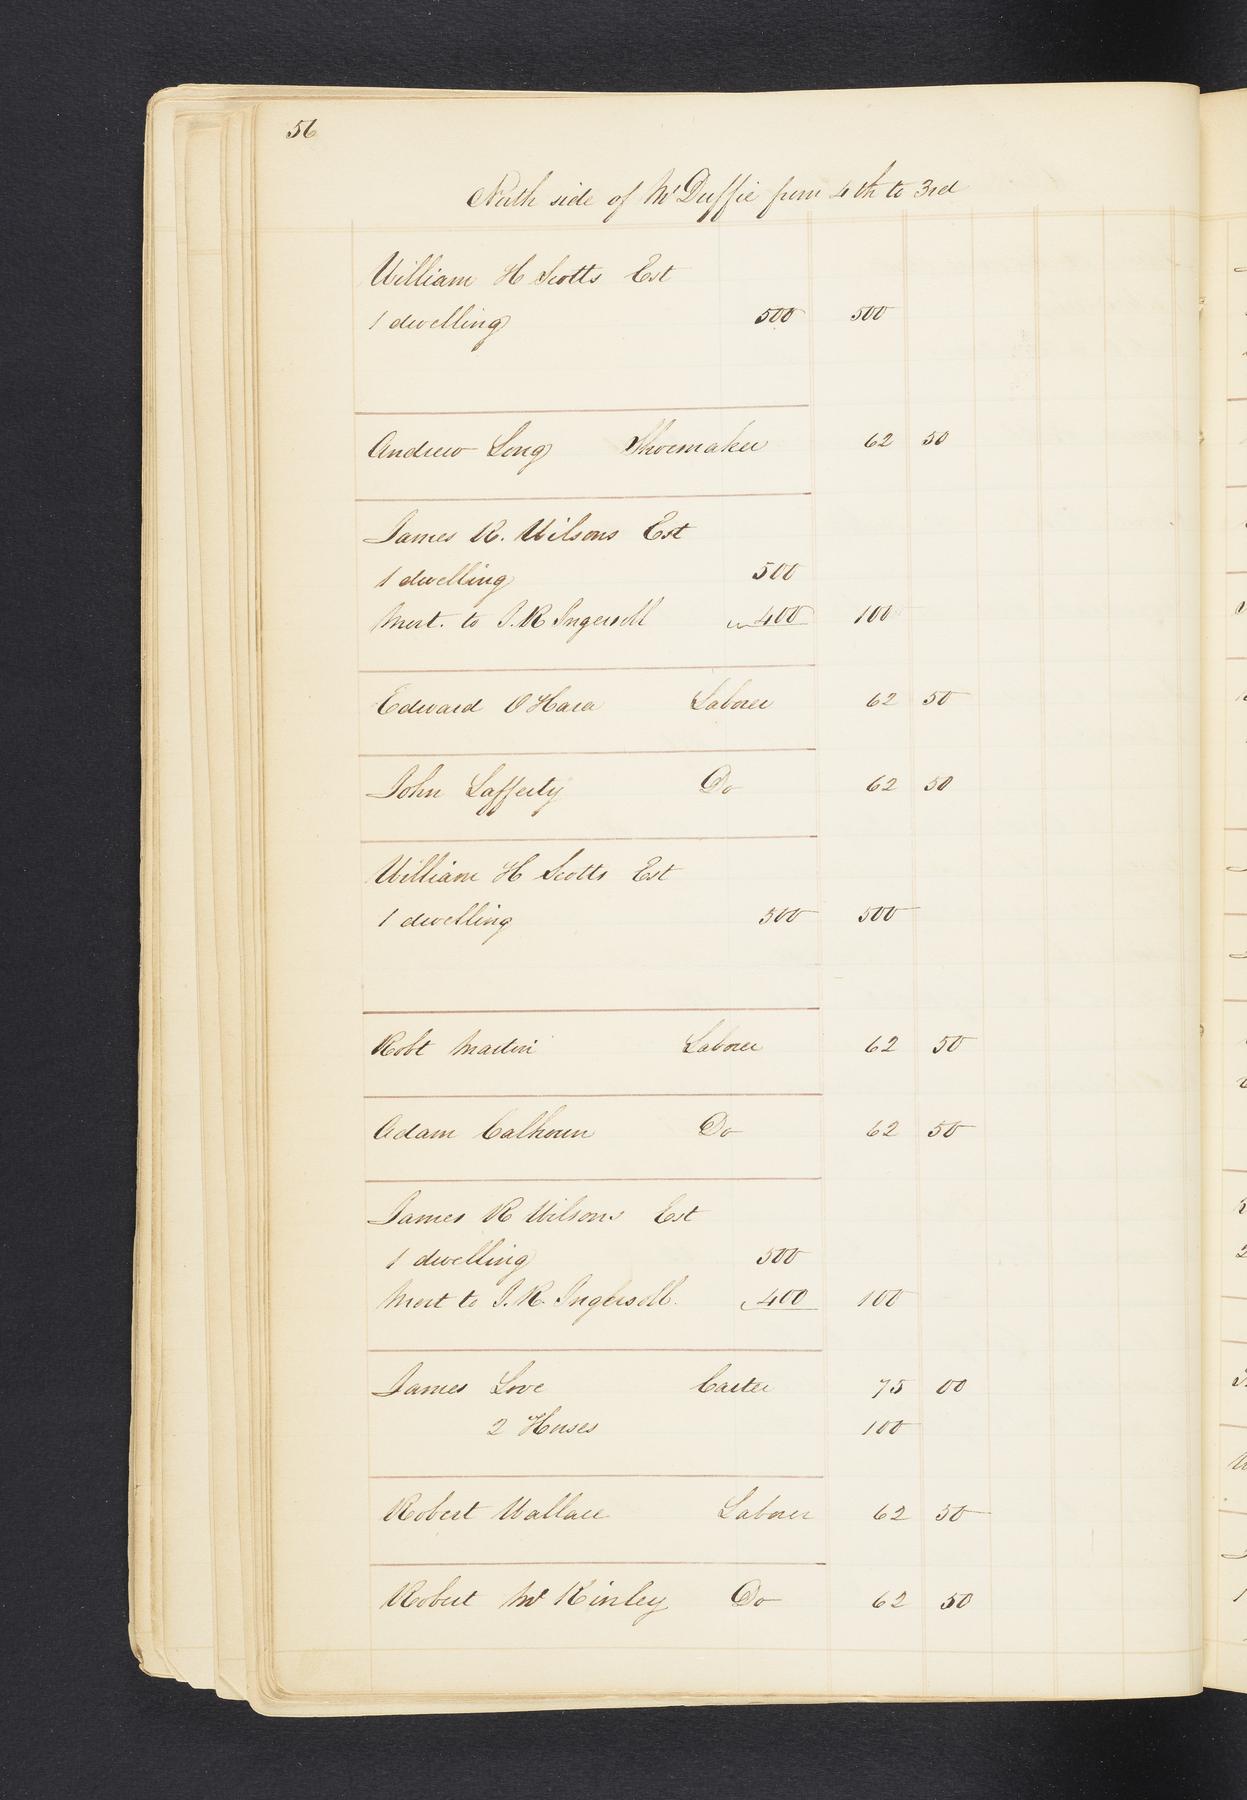 56
North side of Mc Duffie from 4th to 3rd
William H Scotts Est
1 dwelling 500 500
Andrew Long Shoemaker 62 50
James R. Wilsons Est
1 dwelling 500
Mort. to J. R Ingersoll 400 100
Edward O Hara Laborer 62 50
John Lafferty Do 62 50
William H Scotts Est
1 dwelling 500 500
Robt Martin Laborer 62 50
Adam Calhoun Do 62 50
James R Wilsons Est
1 dwelling 500
Mort to J. R. Ingersoll. 400 100
James Love Carter 75 00
2 Horses 100
Robert Wallace Laborer 62 50
Robert Mc Kinley Do 62 50